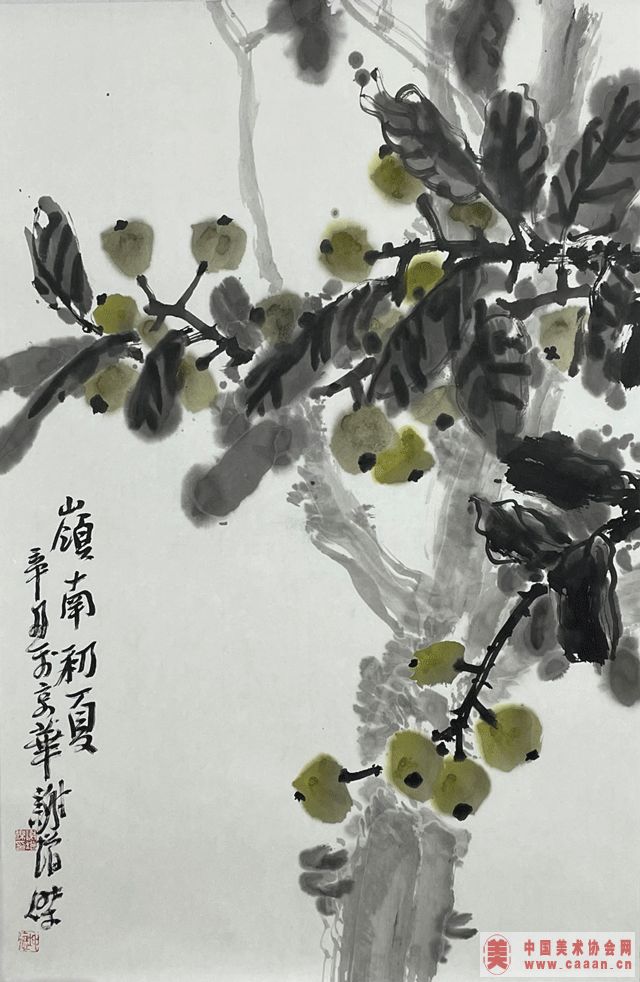 嶺南初夏
辛丑于京華謝增傑
中国美术协会网
www.caaan.cn